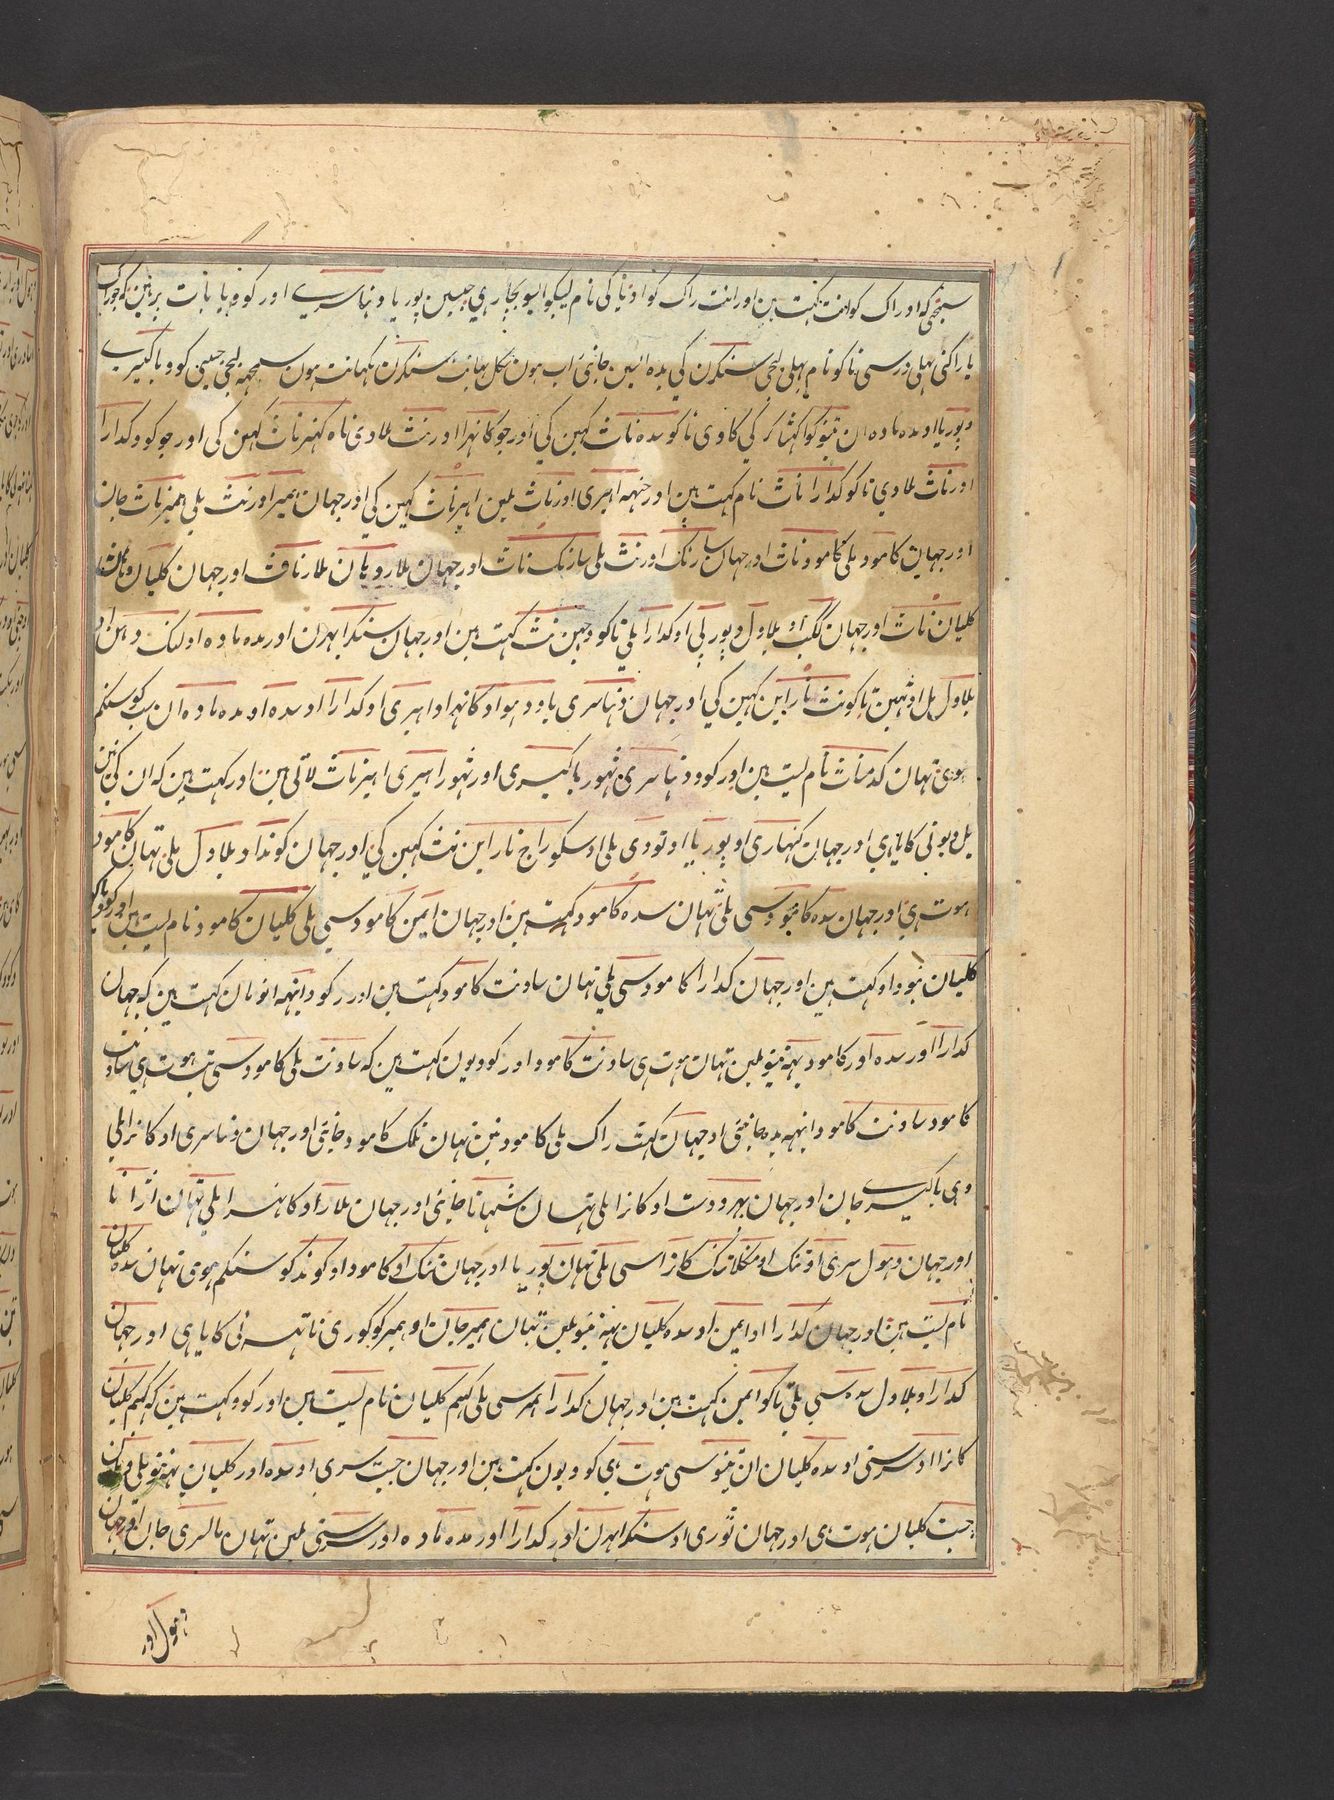 سمجھی کہ اور راک کو انت نکہت ہین اور انت راک کو اد یا کی نام لیکیو الیو بچار ہی جیسین پوریا و نہاسری اور کووہیا بات
یا راکنی پہلی درسی تا کو نام پہلی لیجی سنکرن کی بدہ ایسین جانی اب ہون سنکرن نکہانت ہون سمجہہ لیجی جیسی کووباکیسری
و پوریا او مدہ مادہ ان تینو کو کی کاوی تا کو سدہ نات کہین کی اور جو کانہرا اور نت ملاوی تاہ کنہرنات کہین کی اور جو کوو کدارا
اور نات ملاوی تا کو کدارا نات نام کہت ہین اور جنہہ اہیری اور نات ملین اہیرنات کہین کی اور جہان ہمیر اور نت ملی ہمیرنات جان
اور جہان کامود ملی کامودنات اور جہان سارنک اور نت ملی سارنک نات اور جہان ملار و یان ملارنات اور جہان کلیان
کلیان نات اور جہان ککب او بلاول و پوربی او کدارا ملی تا کو نت کہت ہین اور جہان سنکرابہرن اور مدہ مادہ او لنک دہن او
بلاول مل او نہین تا کو نت نراین کہین کی اور جہان دنہاسری یا و دہوا و کانہرا و اہیری او کدارا او سدہ او مدہ مادہ ان سب کو سنکم
ہوی تہان کدمنات نام لیت ہین اور کوو دنہاسری نہور باکیسری اور نہور اہیری اہیرنات لاتی ہین اور کہت ہین کہ ان کی تین
مل وہونی کایاہی اور جہان کنہاری او پوریا او تودی ملی او سکو راج نارائن نت کہین کی اور جہان کوند او بلاول ملی تہان کامود
ہوت ہی اور جہان سدہ کامود سی ملی تہان سدہ کامود کہت ہین اور جہان ایمن کامود سی ملی کلیان کامود نام لیت ہین اور کوو یا کو
کلیان نبود او کہت ہین اور جہان کدارا کامود سی ملی تہان ساونت کامود کہت ہین اور کوو اینہہ انومان کہت ہین کہ جہان
کدارا اور سدہ اور کامود یہہ تینو ملین تہان ہوت ہی ساونت کامود اور کوو یون کہت ہین کہ ساونت ملی کامود سی تب ہوت ہی ساونت
کامود ساونت کامود اینہہ بدہ جانئی او جہان کہت راک ملی کامود تین تہان تلک کامود جانئی اور جہان دنہاسری او کانرا ملی
وہی باکیسری جان اور جہان بہرودست او کانرا ملی تہان شہانا جانئی اور جہان ملار او کانہرا ملی تہان اڑانا
اور جہان دہول سری او تنک او منکلاتک کانرا سی ملی تہان پوریا اور جہان تنک او کامود او کوند کو سنکم ہوی تہان سدہ کلیان
نام لیت ہین اور جہان کدارا او ایمن او سدہ کلیان یہہ تینو ملین تہان ہمیر جان او ہمیر کو کوری ناتہہ نی کایاہی اور جہان
کدارا و بلاول سدہ سی ملی تا کو ایمن کہت ہین اور جہان کدارا ہمیر سی ملی کہیم کلیان نام لیت ہین اور کوو کہت ہین کہ کہیم کلیان
کانرا او سرستی او سدہ کلیان ان تینو سی ہوت ہی کوو یون کہت ہین اور جہان جیت سری او سدہ اور کلیان یہہ تینو ملی
جیت کلیان ہوت ہی اور جہان توری او سنکرابہرن اور کدارا اور مدہ مادہ اور سرستی ملین تہان مالسری جان اور جہان
دہول اور